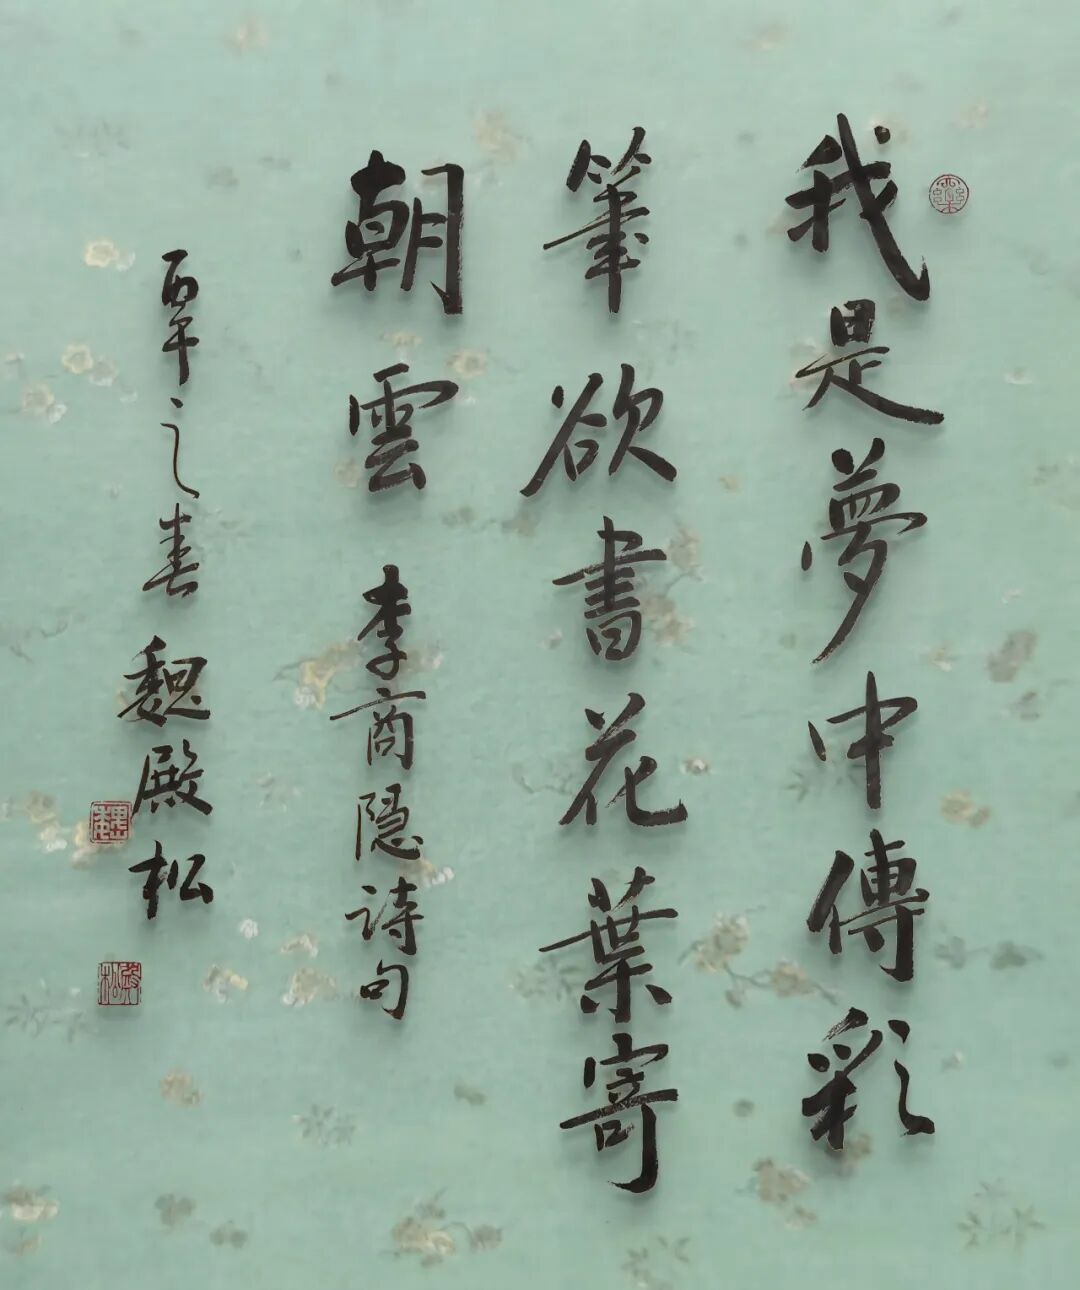 我是夢中傳彩
筆欲書花葉寄
朝雲 李商隱詩句
丙午之春 魏殿松
魏
殿松